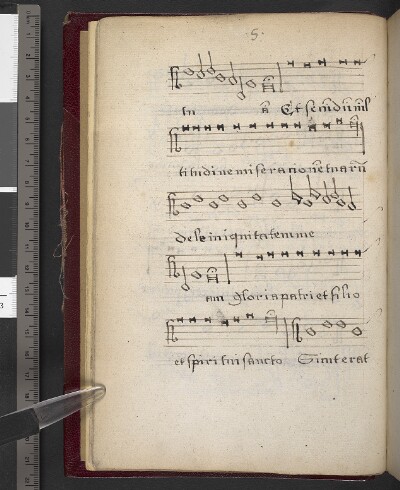 5.
tu ā Et secūdū ml̄
titudine miserationē tuarū
dele iniquitatem me
am gloria patri et filio
et spiritui sancto Sicut erat